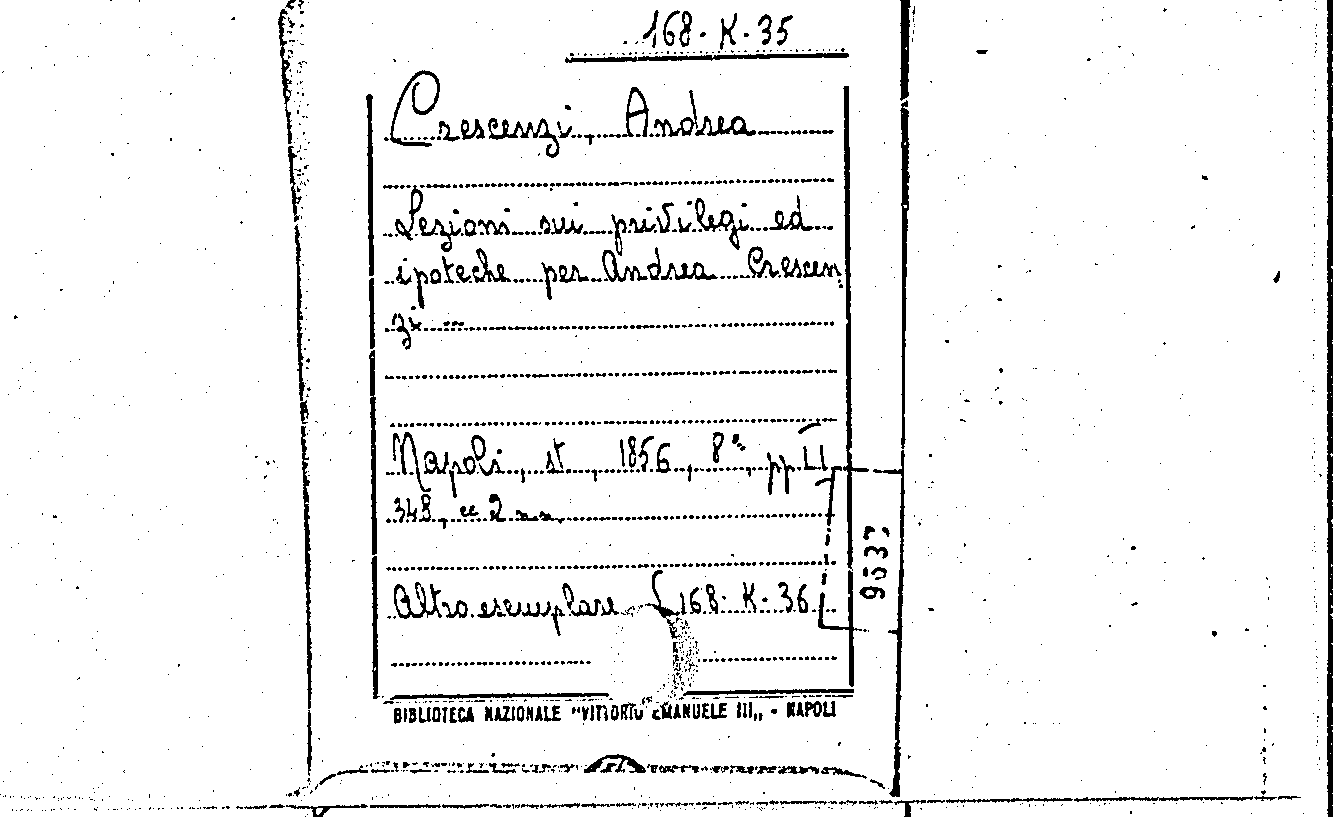 168-K-35
Crescenzi, Andrea
Lezioni sui privilegi ed
ipoteche per Andrea Crescen
zi ---
Napoli, st, 1856, 8°, pp
348, cc 2 nn
Altro esemplare [168-K-36
9537
BIBLIOTECA NAZIONALE "VITTORIO EMANUELE III„ - NAPOLI